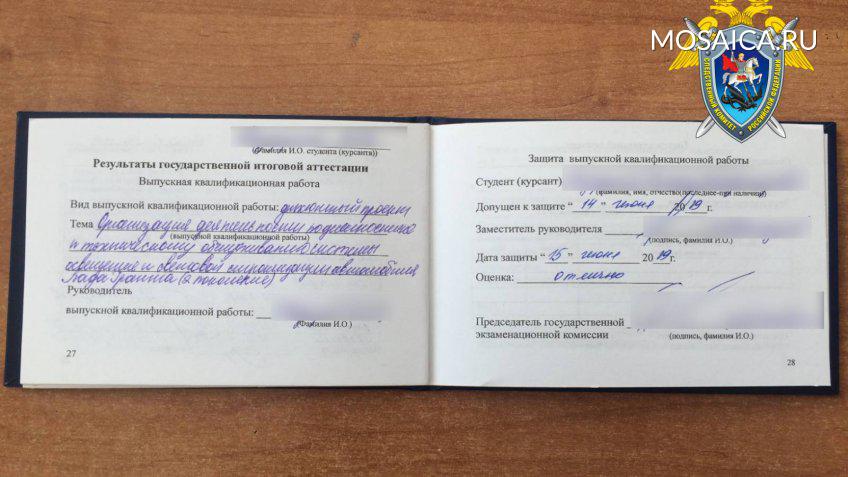 MOSAICA.RU
СЛЕДСТВЕННЫЙ КОМИТЕТ РОССИЙСКОЙ ФЕДЕРАЦИИ
(Фамилия И.О. студента (курсанта))
Результаты государственной итоговой аттестации
Выпускная квалификационная работа
Вид выпускной квалификационной работы: дипломный проект
Тема Организация деятельности
(выпускной квалификационной работы)
и техническому обслуживанию системы
освещения и световой сигнализации автомобиля
Лада Гранта (2 поколение)
Руководитель
выпускной квалификационной работы:
(Фамилия И.О.)
27
Защита выпускной квалификационной работы
Студент (курсант)
(фамилия, имя, отчество(последнее-при наличии)
Допущен к защите "14" июня 2019 г.
Заместитель руководителя
(подпись, фамилия И.О.)
Дата защиты "15" июня 2019 г.
Оценка: отлично
Председатель государственной
экзаменационной комиссии
(подпись, фамилия И.О.)
28